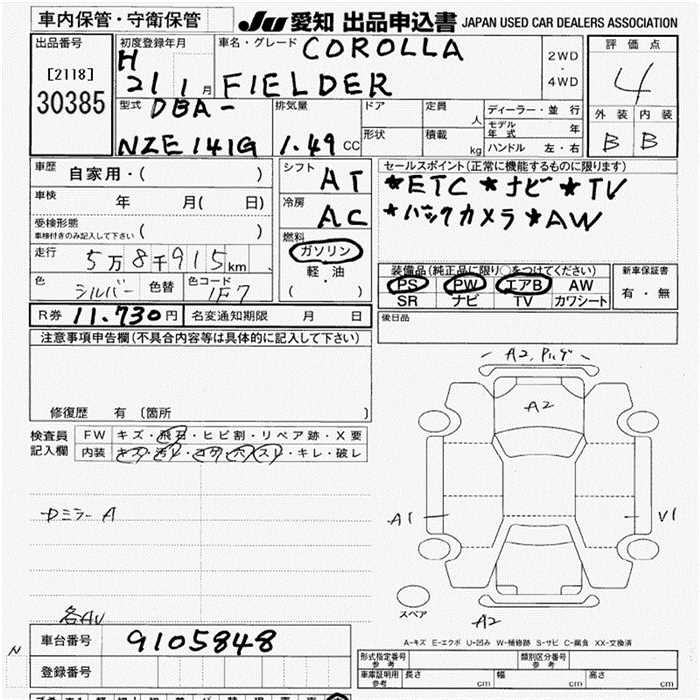 車内保管・守衛保管
JU 愛知 出品申込書 JAPAN USED CAR DEALERS ASSOCIATION
出品番号
[2118]
30385
初度登録年月
H
21 1 月
車名・グレード
COROLLA
FIELDER
2WD
・
4WD
評価点
4
外装 内装
B B
型式
DBA-
NZE141G
排気量
1.49 CC
ドア
形状
定員 人
積載 kg
ディーラー・並行
モデル年式 年
ハンドル 左・右
車歴
自家用・( )
車検 年 月( 日)
受検形態
車検付きのみ記入して下さい ( )
走行 5万8千915km
色 シルバー 色替 色コード 1F7
シフト AT
冷房 AC
燃料
ガソリン
軽・油
( ・ )
セールスポイント(正常に機能するものに限ります)
*ETC *ナビ *TV
*バックカメラ *AW
装備品(純正品に限り○をつけてください)
PS PW エアB AW
SR ナビ TV カワシート
新車保証書
有・無
R券 11.730円 名変通知期限 月 日
後日品
注意事項申告欄(不具合内容等は具体的に記入して下さい)
修復歴 有 〔箇所 〕
検査員
記入欄
FW キズ・飛石・ヒビ割・リペア跡・X要
内装 キズ・汚レ・コゲ・穴・スレ・キレ・破レ
Dミラー A
各AU
A2, Pルゲ
A2
A1
V1
スペア
A2
A-キズ E-エクボ U-凹み W-補修跡 S-サビ C-腐食 XX-交換済
N
車台番号 9105848
登録番号
形式指定番号
参考
類別区分番号
参考
車庫証明用
参考
長さ cm 幅 cm 高さ cm